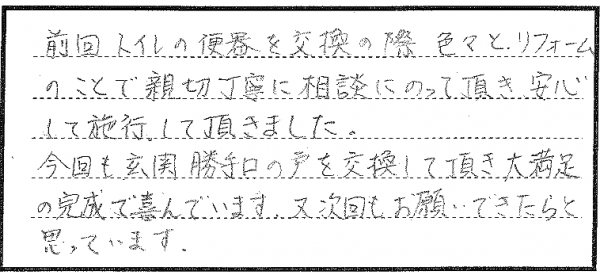 前回トイレの便器を交換の際 色々と.リフォーム
のことで親切丁寧に相談にのって頂き、安心
して施行.して頂きました。
今回も玄関勝手口の戸を交換して頂き大満足
の完成で喜んでいます.又次回もお願いできたらと
思っています.